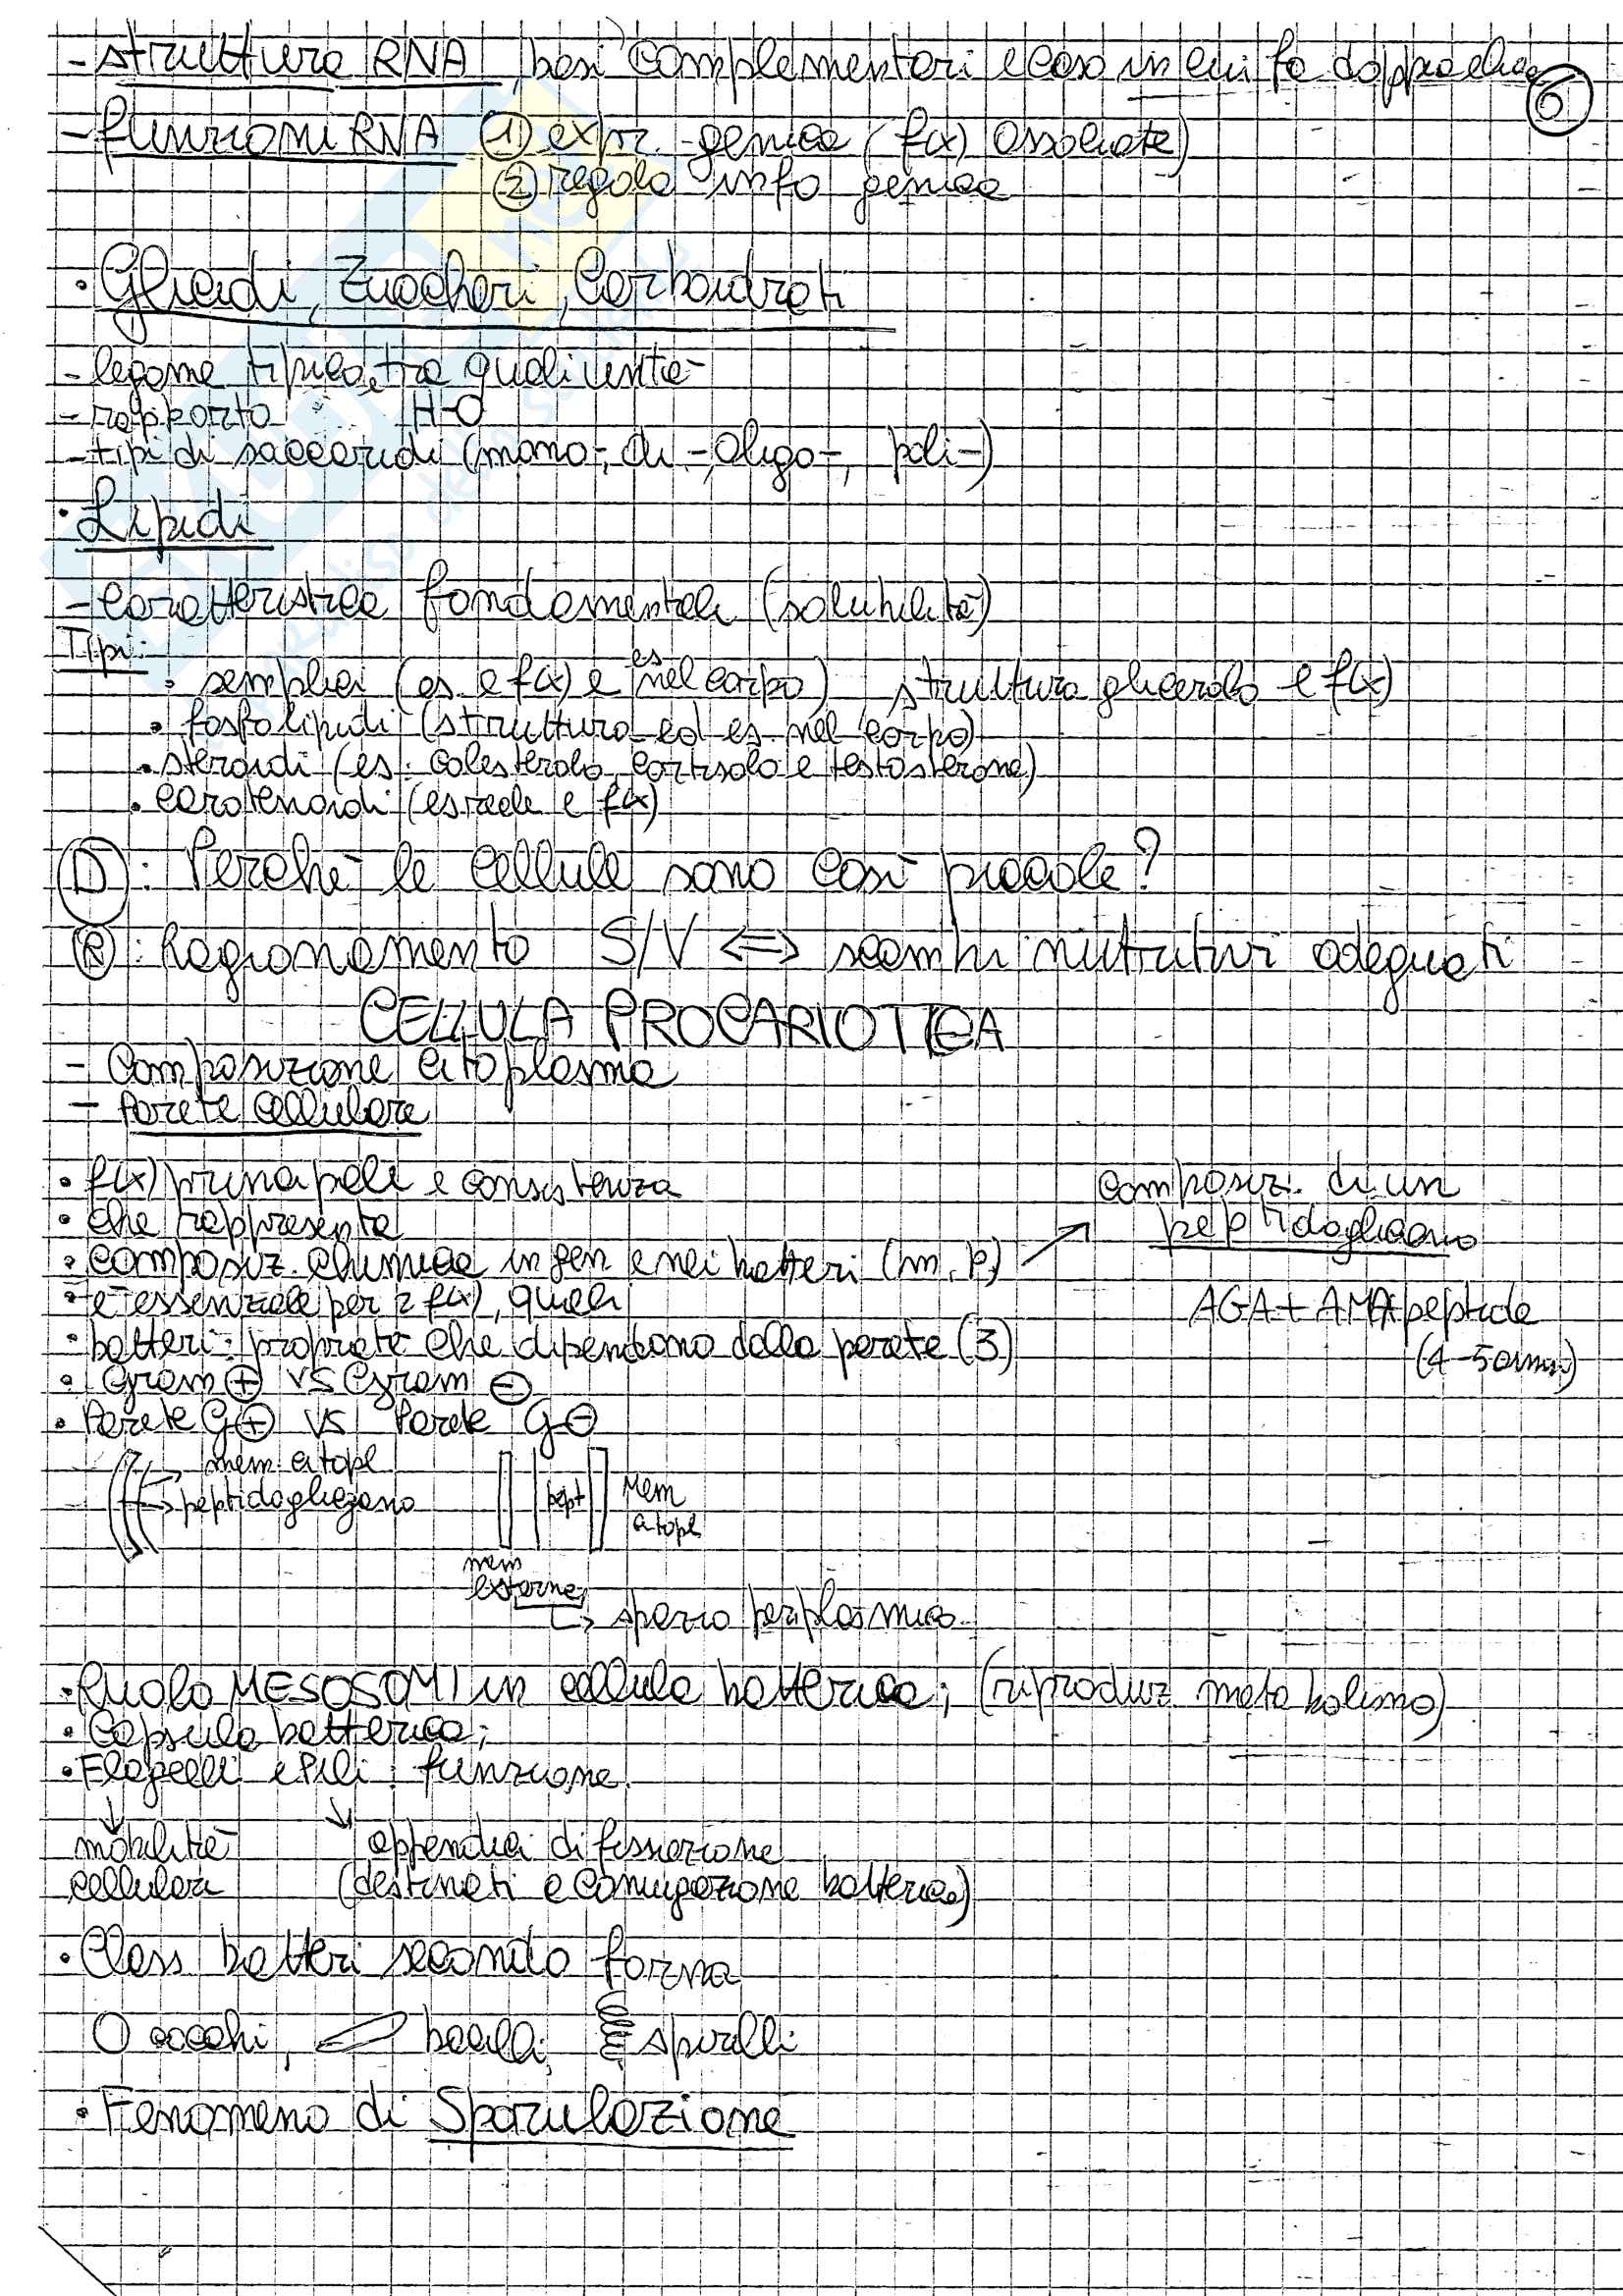 - struttura RNA, basi complementari e caso in cui fa doppia elica
6
- funzioni RNA ① expr. genica (f(x) associate)
② regola info genica
• Glucidi, Zuccheri, Carboidrati
- legame tipico, tra quali unità
- rapporto H-O
- tipi di saccaridi (mono-, di-, oligo-, poli-)
• Lipidi
- caratteristica fondamentale (solubilità)
Tipi:
• semplici (es e f(x) e es nel corpo), struttura glicerolo e f(x)
• fosfolipidi (struttura ed es. nel corpo)
• steroidi (es: colesterolo, cortisolo e testosterone)
• carotenoidi (e f(x))
D: Perché le cellule sono così piccole?
R: Ragionamento S/V ⟺ scambi nutritivi adeguati
CELLULA PROCARIOTICA
- Composizione citoplasma
- Parete cellulare
• f(x) principale e consistenza
• che rappresenta
• composiz. chimica in gen e nei batteri (m, p) → composiz. di un peptidoglicano
AGA + AMA peptide
(4-5 amm.)
• è essenziale per 2 f(x), quali
• batteri: proprietà che dipendono dalla parete (3)
• Gram ⊕ VS Gram ⊖
• Parete G⊕ VS Parete G⊖
→ mem citopl
→ peptidoglicano
pept
Mem citopl
mem esterna
↳ spazio periplasmico
• Ruolo MESOSOMI in cellula batterica; (riproduz metabolismo)
• Capsula batterica;
• Flagelli e Pili: funzione.
↓ ↘
mobilità appendici di fissazione
cellulare (destinati a coniugazione batterica)
• Class batteri secondo forma
cocchi, bacilli, spirilli
• Fenomeno di Sporulazione